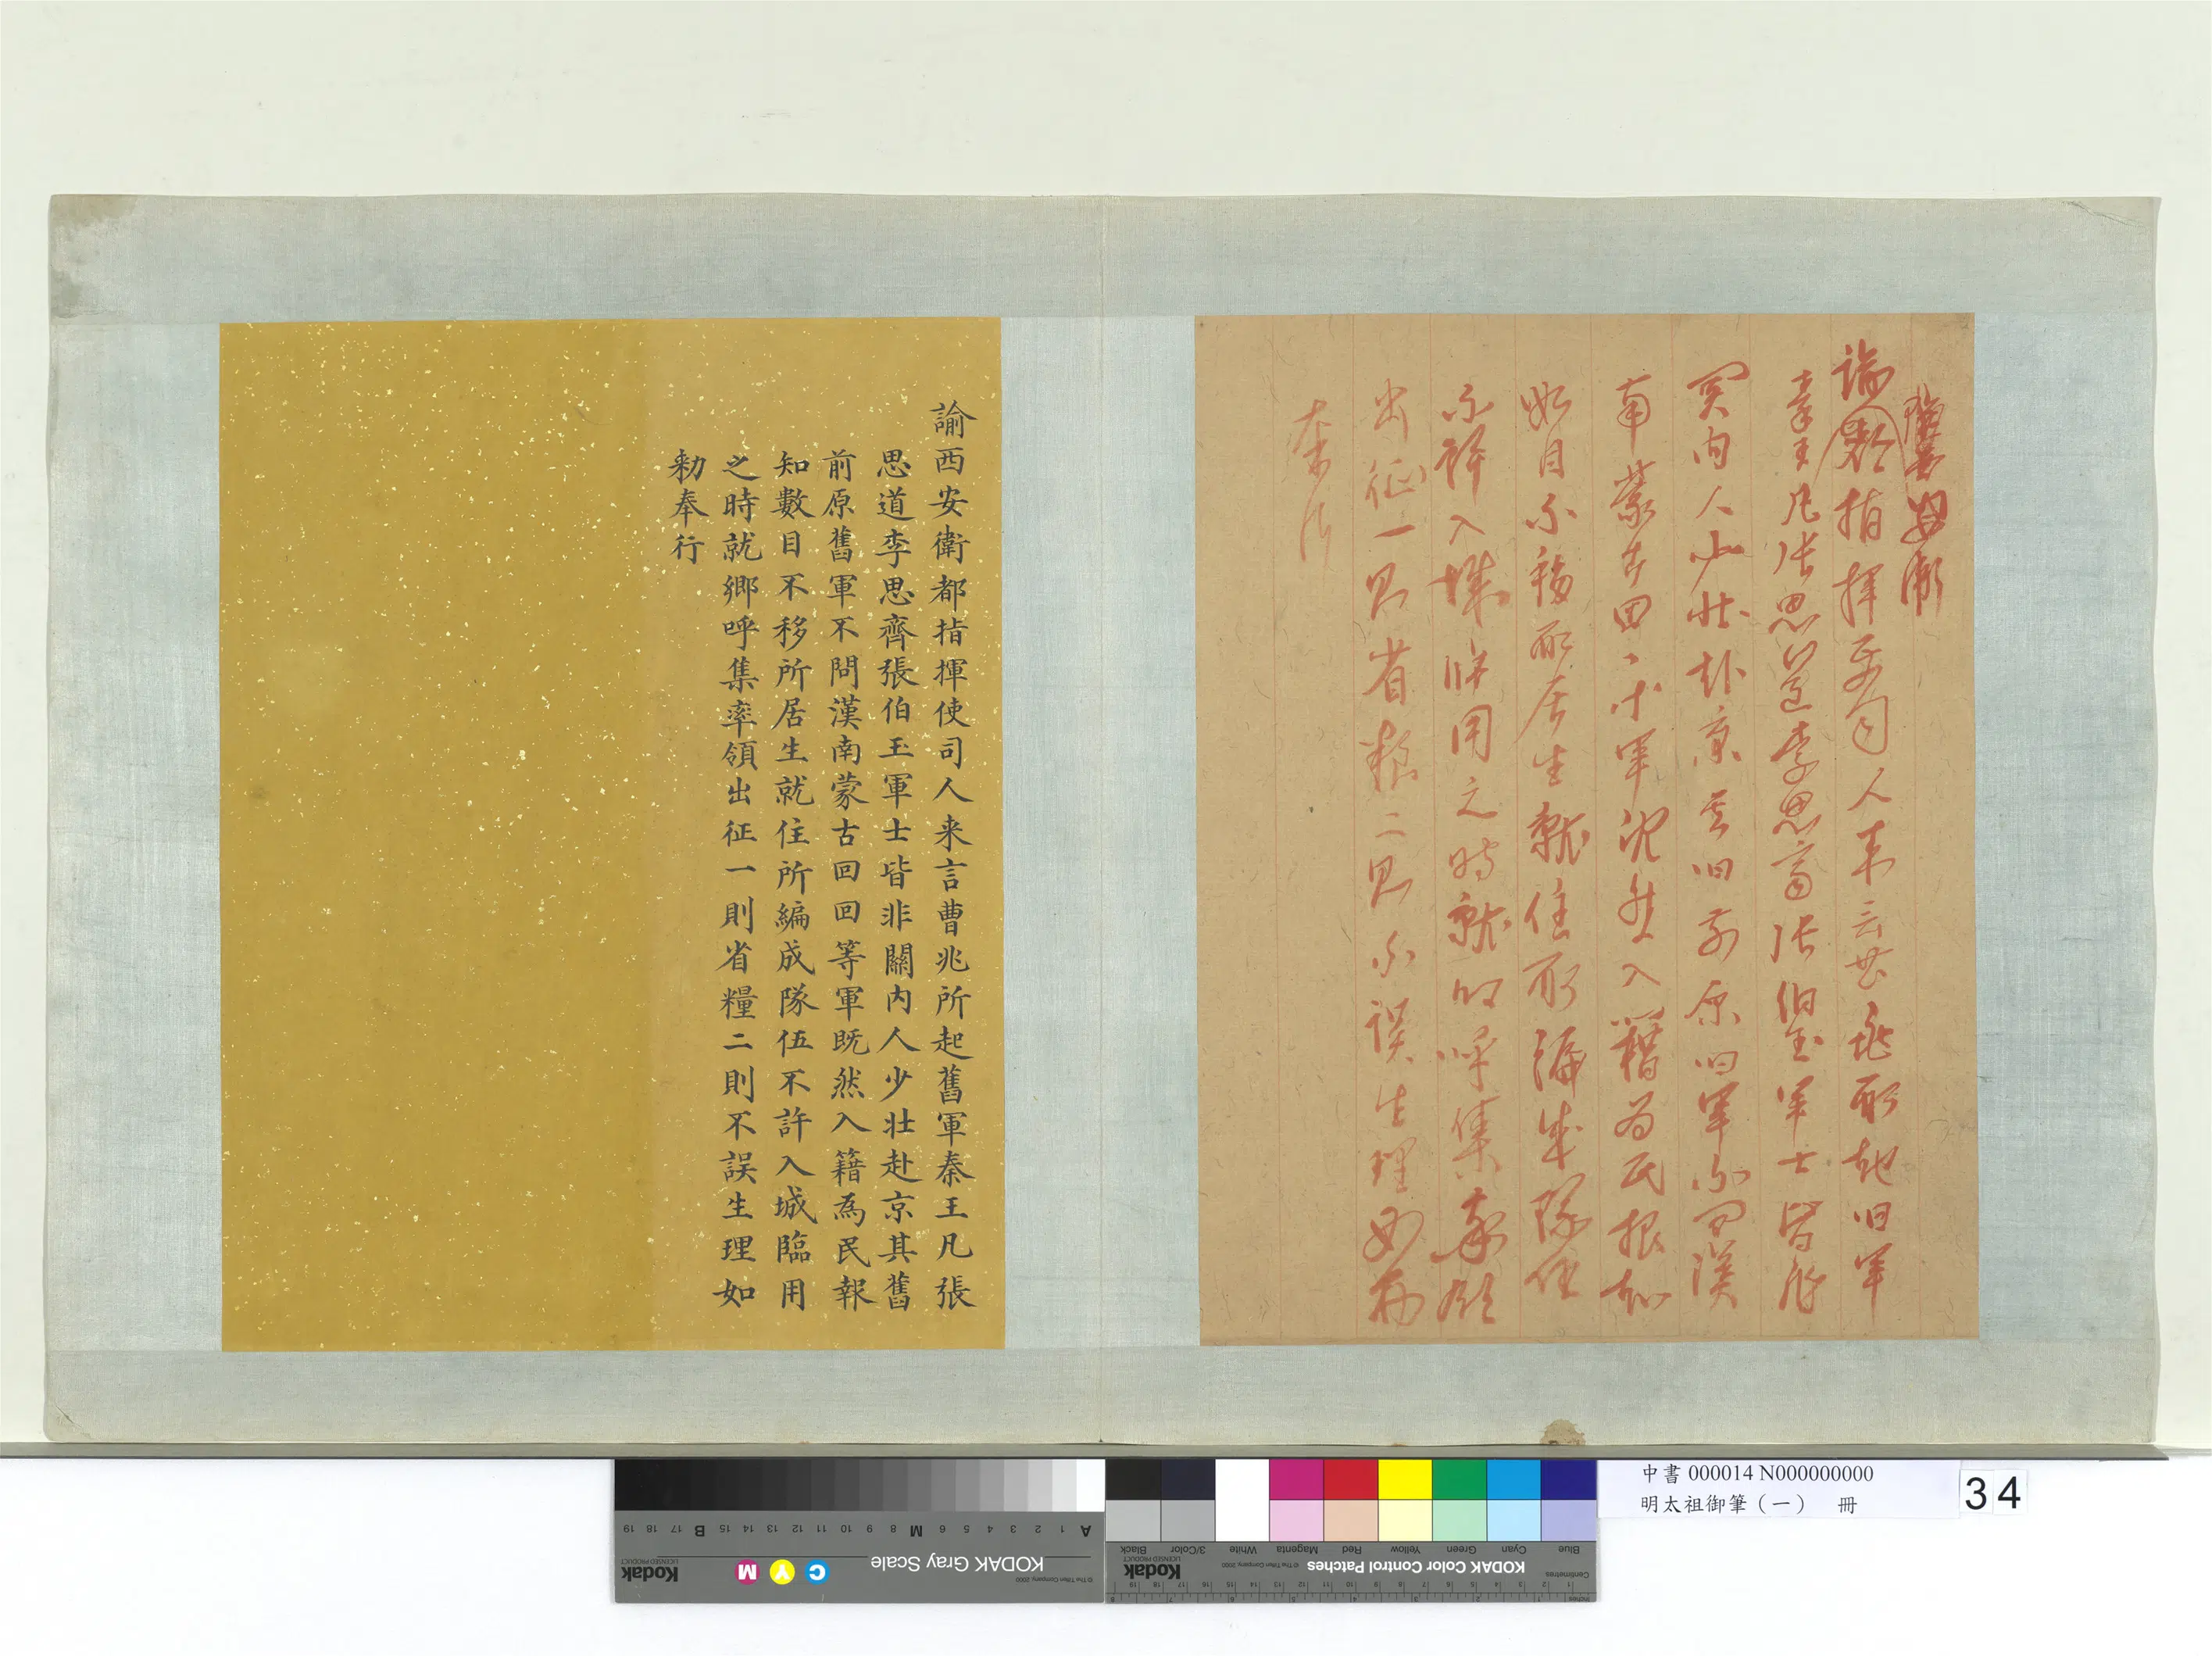 安衛
諭都指揮使司人来言曹兆所起旧軍
秦王凡張思道李思齊張伯玉軍士皆非
関内人少壮赴京其旧前原旧軍不問漢
南蒙古回々等軍既然入籍為民報知
数目不移所居生就住所編成隊伍
不許入城臨用之時就郷呼集率領
出征一則省粮二則不誤生理如勅
奉行
諭西安衛都指揮使司人来言曹兆所起舊軍秦王凡張
思道李思齊張伯玉軍士皆非關内人少壯赴京其舊
前原舊軍不問漢南蒙古回回等軍既然入籍為民報
知數目不移所居生就住所編成隊伍不許入城臨用
之時就鄉呼集率領出征一則省糧二則不誤生理如
勑奉行
中書 000014 N000000000
明太祖御筆（一） 冊
34
A 1 2 3 4 5 6 M 8 9 10 11 12 13 14 15 B 17 18 19
KODAK Gray Scale
C Y M
Kodak
LICENSED PRODUCT
© The Tiffen Company, 2000
Blue Cyan Green Yellow Red Magenta White 3/Color Black
KODAK Color Control Patches
© The Tiffen Company, 2000
Kodak
LICENSED PRODUCT
Centimetres
Inches